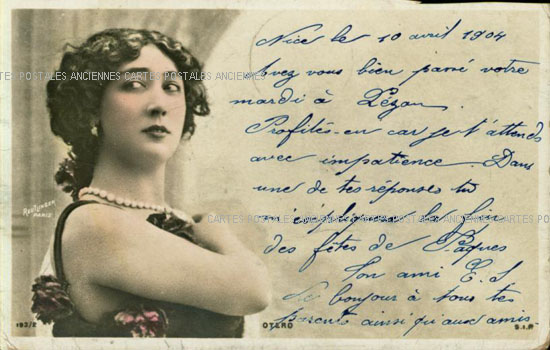 Nice le 10 avril 1904
CARTES POSTALES ANCIENNES CARTES POSTALES ANCIENNES
Avez vous bien passé votre
mardi à Lézan
Profités-en car je t'attends
avec impatience. Dans
une de tes réponses tu
CARTES POSTALES ANCIENNES CARTES POSTALES
m'expliqueras la
des fêtes de Pâques
Ton ami E. S
bonjour à tous tes
parents ainsi qu'aux amis
REUTLINGER
PARIS
193/2
OTERO
S.I.P.